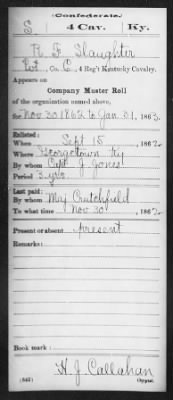 (Confederate.)
S 4 Cav. Ky.
R. F. Slaughter
Pvt, Co. C, 4 Reg't Kentucky Cavalry.
Appears on
Company Muster Roll
of the organization named above,
for Nov 30 1862 to Jan 31, 1863.
Enlisted:
When Sept 15, 1862.
Where Georgetown Ky
By whom Capt J Jones
Period 3 yrs
Last paid:
By whom Maj Crutchfield
To what time Nov 30, 1862.
Present or absent present
Remarks:
Book mark:
H. J. Callahan
(642) Copyist.